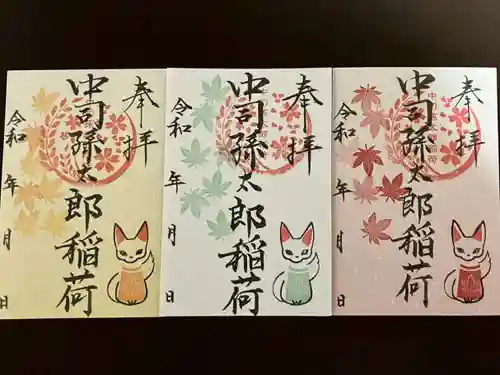 奉拝
中司孫太郎稲荷
令和 年 月 日
奉拝
中司孫太郎稲荷
令和 年 月 日
奉拝
中司孫太郎稲荷
令和 年 月 日